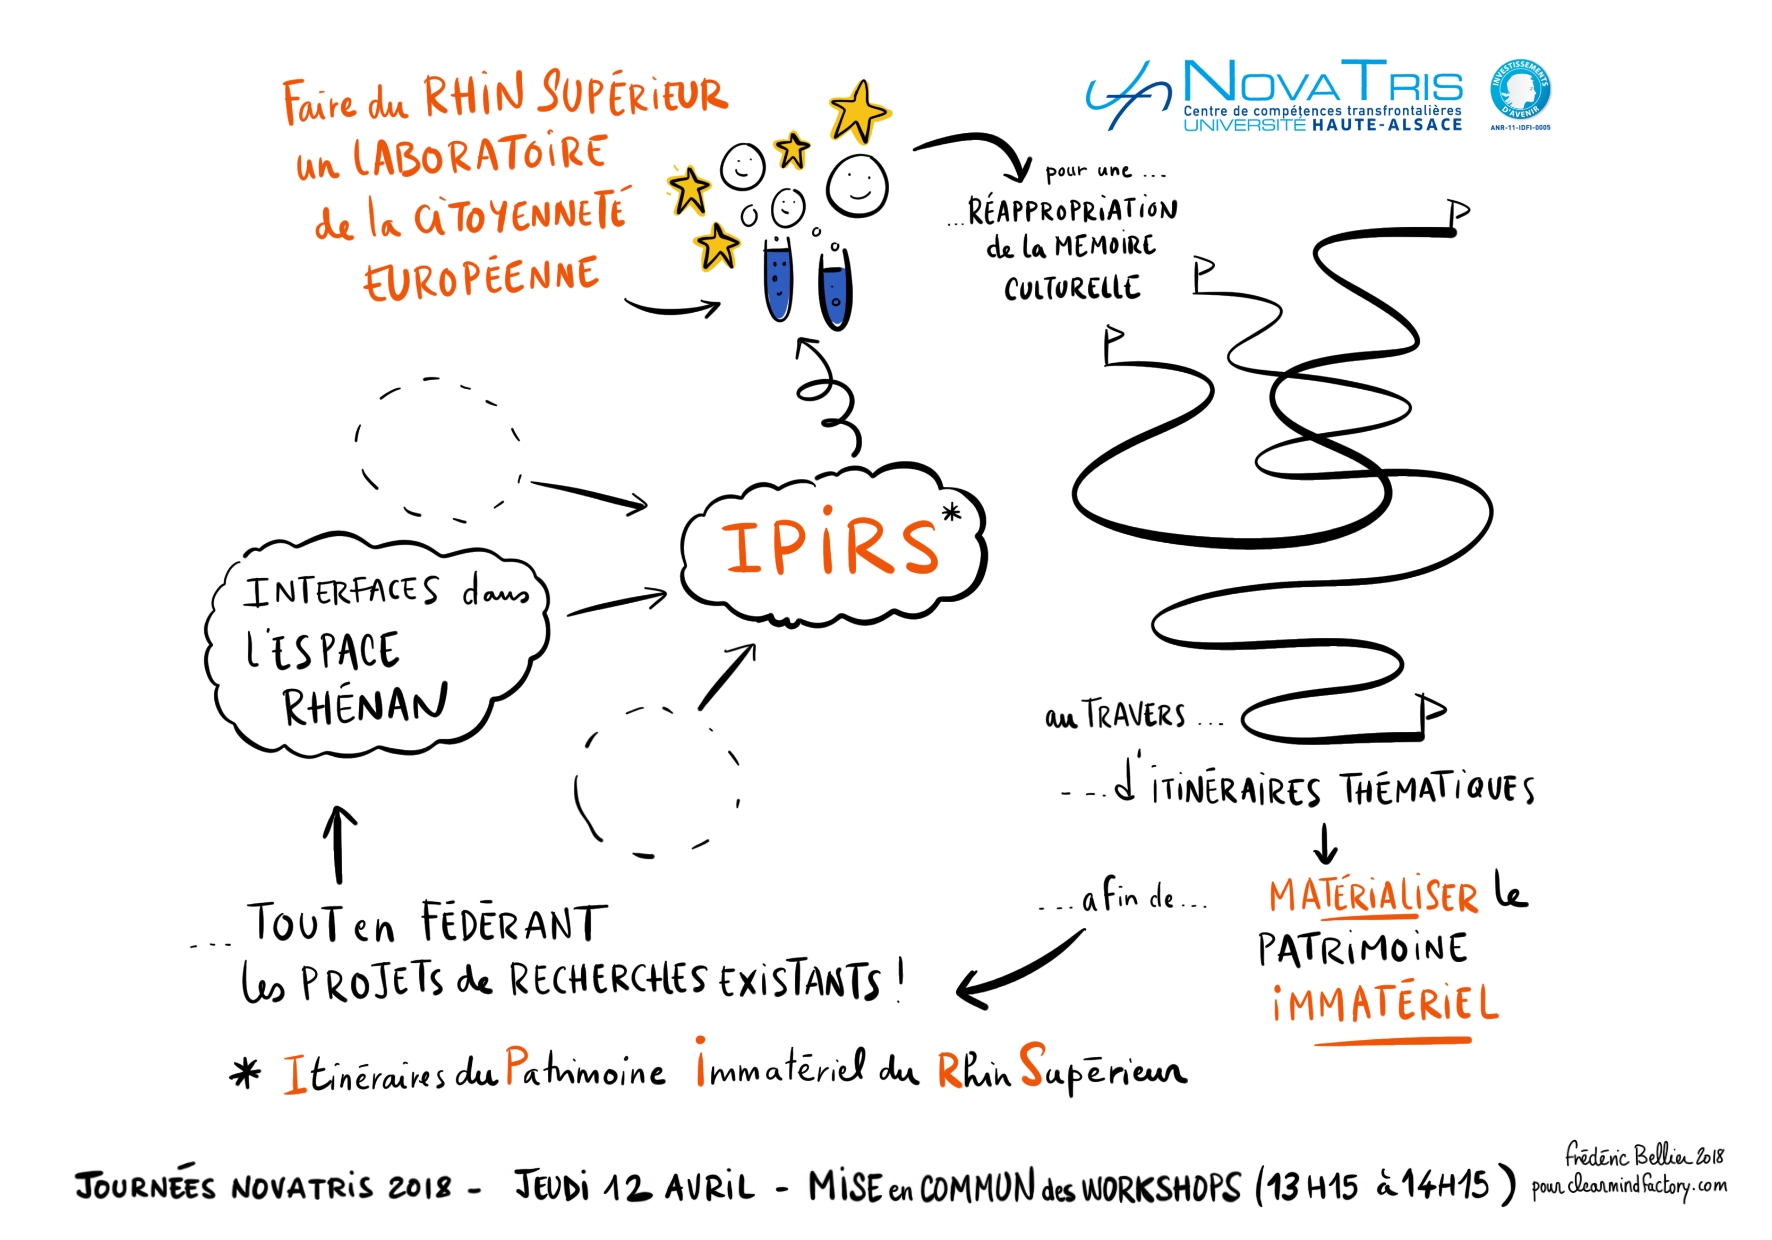 Faire du RHIN SUPÉRIEUR
un LABORATOIRE
de la CITOYENNETÉ
EUROPÉENNE
NOVATRIS
Centre de compétences transfrontalières
UNIVERSITÉ HAUTE-ALSACE
INVESTISSEMENTS
D'AVENIR
ANR-11-IDFI-0005
pour une ...
...RÉAPPROPRIATION
de la MEMOIRE
CULTURELLE
IPIRS*
INTERFACES dans
L'ESPACE
RHÉNAN
au TRAVERS ...
...d'ITINÉRAIRES THÉMATIQUES
MATÉRIALISER le
PATRIMOINE
IMMATÉRIEL
...afin de...
... TOUT en FÉDÉRANT
les PROJETS de RECHERCHES EXISTANTS !
* Itinéraires du Patrimoine Immatériel du Rhin Supérieur
JOURNÉES NOVATRIS 2018 - JEUDI 12 AVRIL - MISE en COMMUN des WORKSHOPS (13H15 à 14H15)
Frédéric Bellier 2018
pour clearmindfactory.com